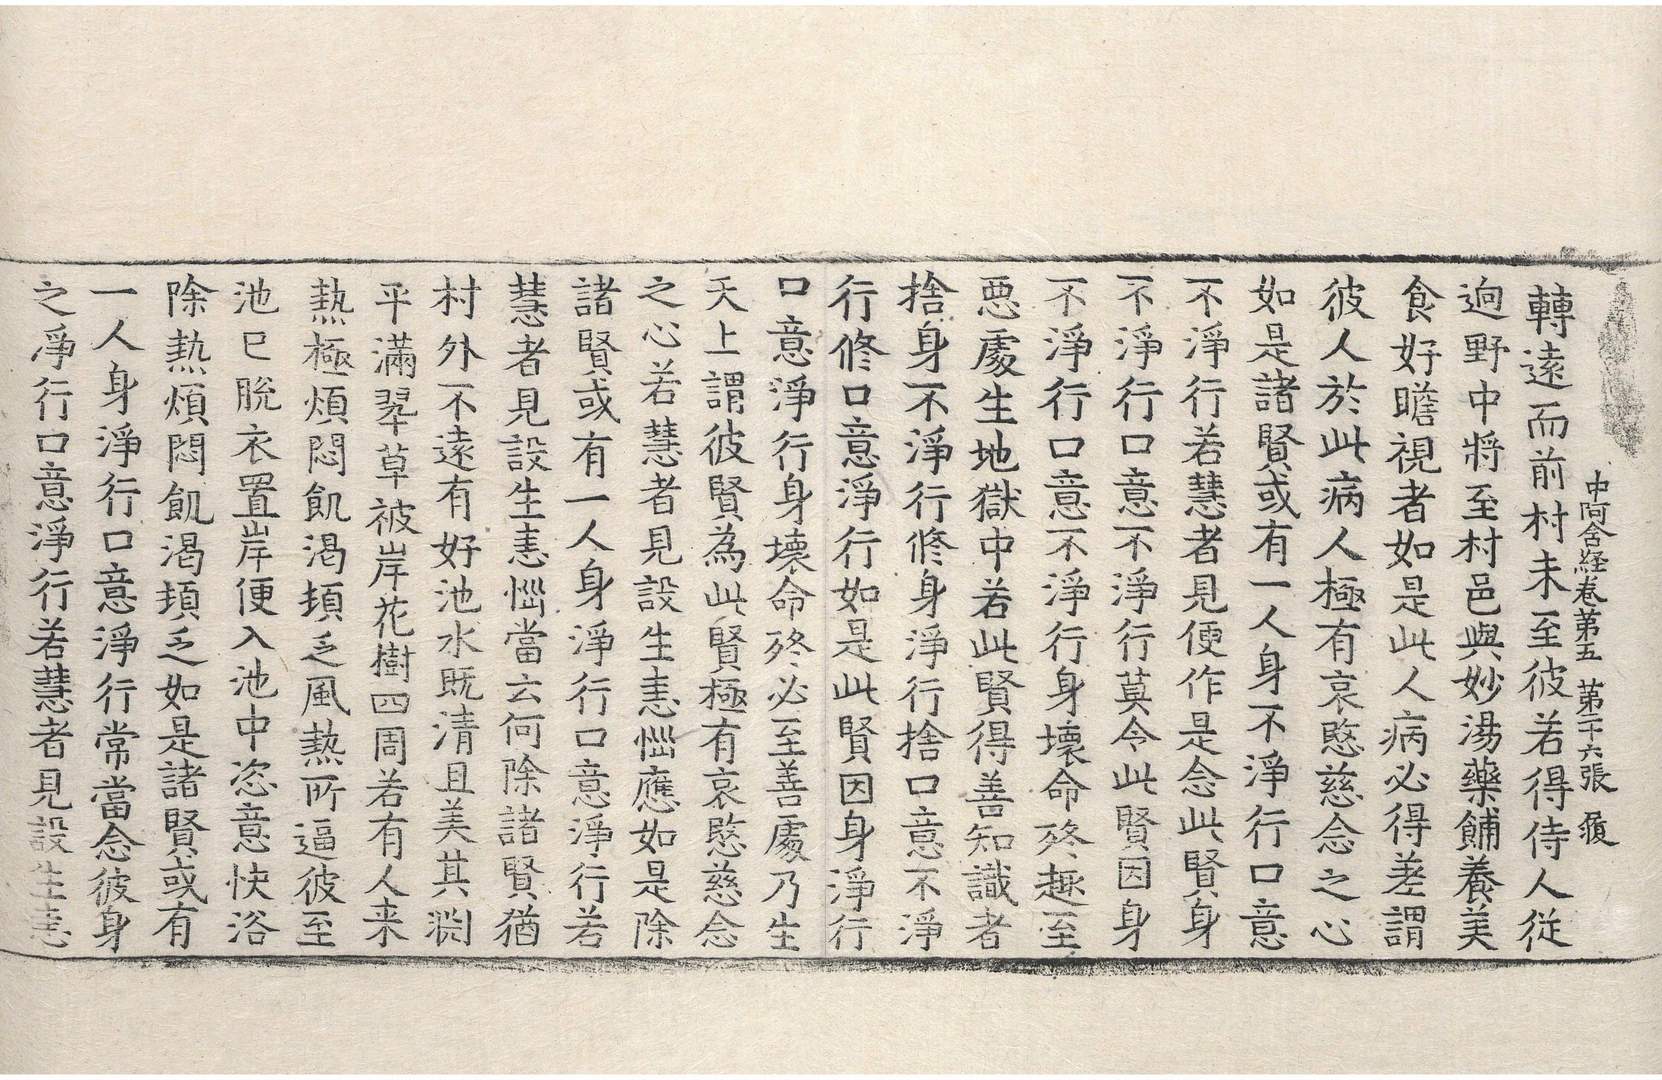 中阿含経卷第五　第二十六張　履
轉遠而前村未至彼若得侍人從
逈野中將至村邑與妙湯藥餔養美
食好瞻視者如是此人病必得差謂
彼人於此病人極有哀愍慈念之心
如是諸賢或有一人身不淨行口意
不淨行若慧者見便作是念此賢身
不淨行口意不淨行莫令此賢因身
不淨行口意不淨行身壞命終趣至
惡處生地獄中若此賢得善知識者
捨身不淨行修身淨行捨口意不淨
行修口意淨行如是此賢因身淨行
口意淨行身壞命終必至善處乃生
天上謂彼賢為此賢極有哀愍慈念
之心若慧者見設生恚惱應如是除
諸賢或有一人身淨行口意淨行若
慧者見設生恚惱當云何除諸賢猶
村外不遠有好池水既清且美其渕
平滿翠草被岸花樹四周若有人来
熱極煩悶飢渴頓乏風熱所逼彼至
池已脫衣置岸便入池中恣意快浴
除熱煩悶飢渴頓乏如是諸賢或有
一人身淨行口意淨行常當念彼身
之淨行口意淨行若慧者見設生恚